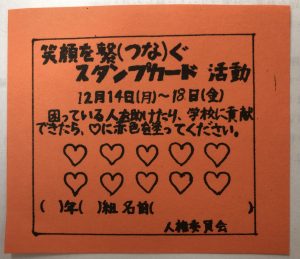 笑顔を繋(つな)ぐ
スタンプカード 活動
12月14日(月)~18日(金)
困っている人を助けたり、学校に貢献
できたら、♡に赤色を塗ってください。
( )年( )組 名前( )
人権委員会